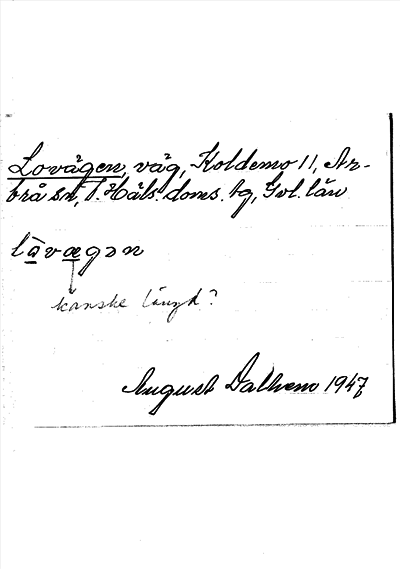 Lovägen, väg, Koldemo 11, Ar-
brå sn, V. Häls. doms. tg, Gvl. län
låvægən
kanske längd?
August Dalhem 1947